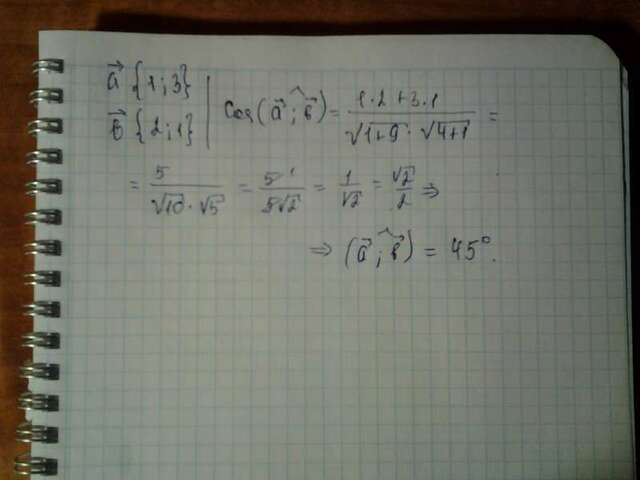 a⃗ {1;3} | cos(a⃗ ; b⃗) = (1·2+3·1)/(√1+9 · √4+1) =
b⃗ {2;1}
= 5/(√10·√5) = 5/(5√2) = 1/√2 = √2/2 ⇒
⇒ (a⃗ ; b⃗) = 45°.